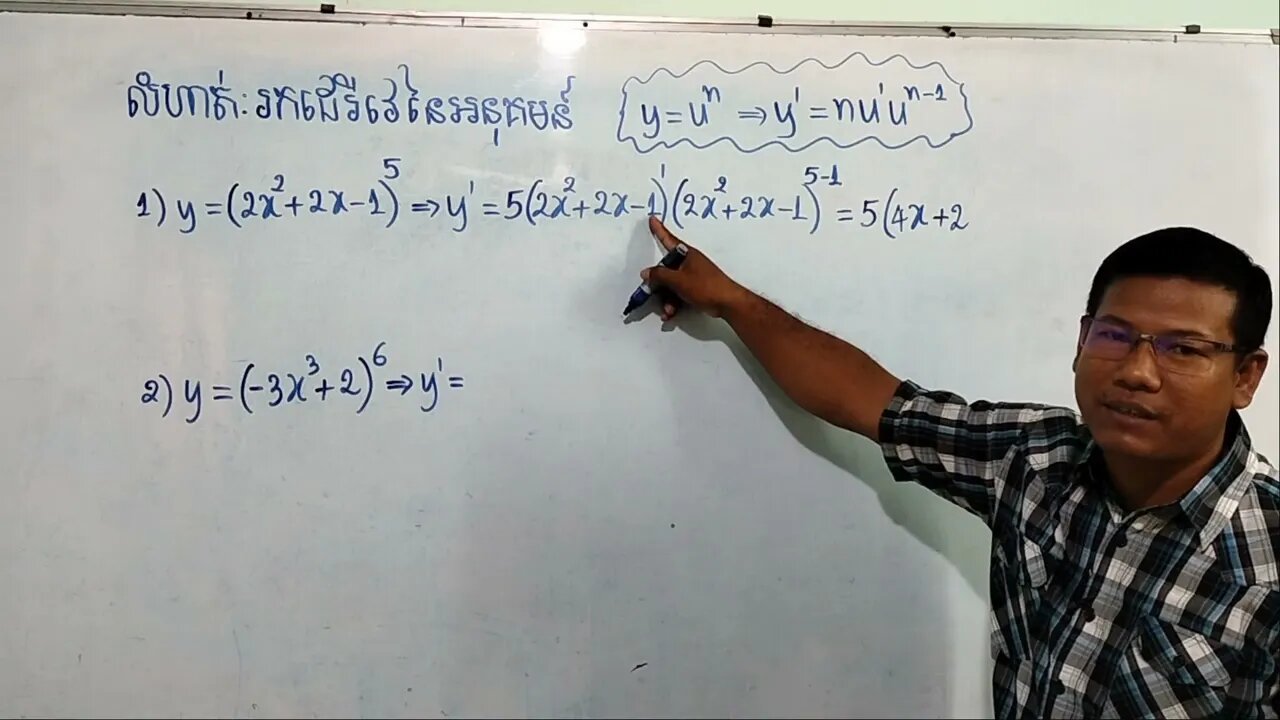 លំហាត់: រកដេរីវេនៃអនុគមន៍ y = uⁿ ⇒ y' = nu'uⁿ⁻¹
1) y = (2x² + 2x - 1)⁵ ⇒ y' = 5(2x² + 2x - 1)'(2x² + 2x - 1)⁵⁻¹ = 5(4x + 2
2) y = (-3x³ + 2)⁶ ⇒ y' =